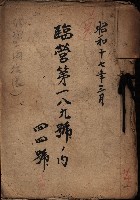 昭和十七年三月
臨營第一八九號ノ内
四四號